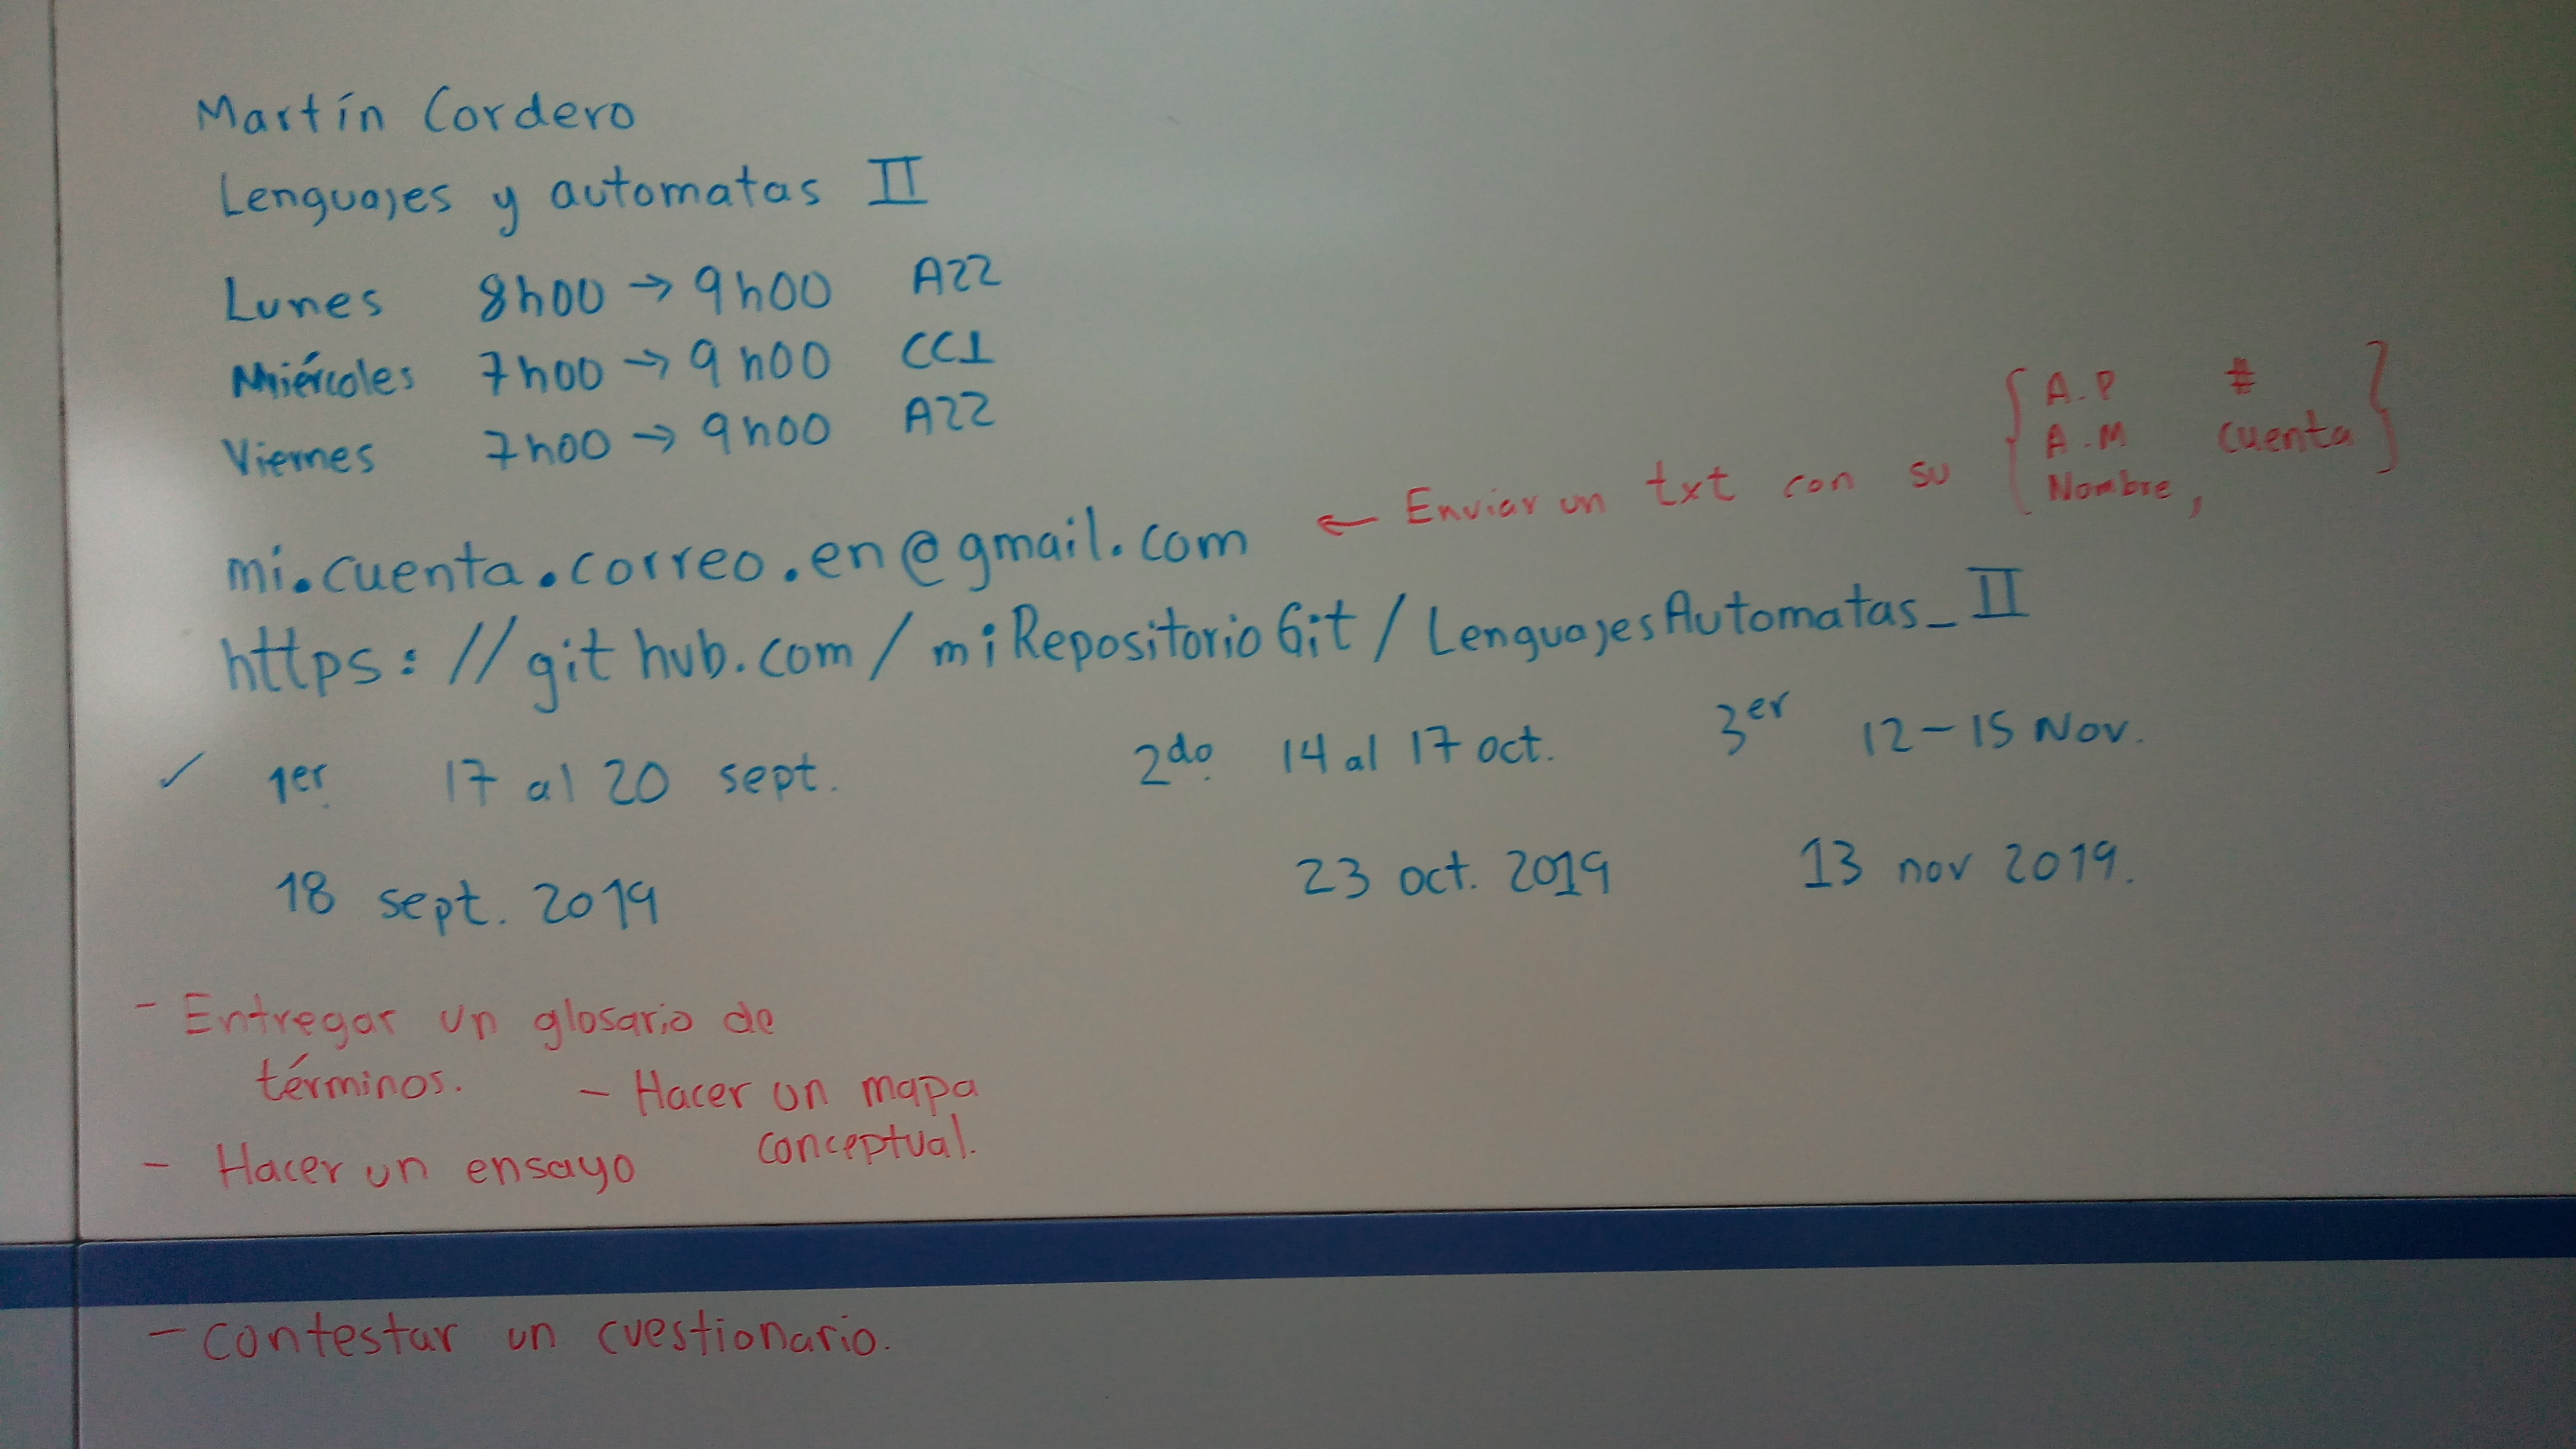 Martín Cordero
Lenguajes y automatas II
Lunes 8h00 → 9h00 A22
Miércoles 7h00 → 9h00 CC1
Viernes 7h00 → 9h00 A22
mi.cuenta.correo.en@gmail.com ← Enviar un txt con su { A.P #
A.M cuenta }
Nombre,
https://github.com/miRepositorioGit/LenguajesAutomatas_II
✓ 1er. 17 al 20 sept. 2do. 14 al 17 oct. 3er 12-15 Nov.
18 sept. 2019 23 oct. 2019 13 nov 2019.
- Entregar un glosario de
términos.
- Hacer un mapa
conceptual.
- Hacer un ensayo
- Contestar un cuestionario.